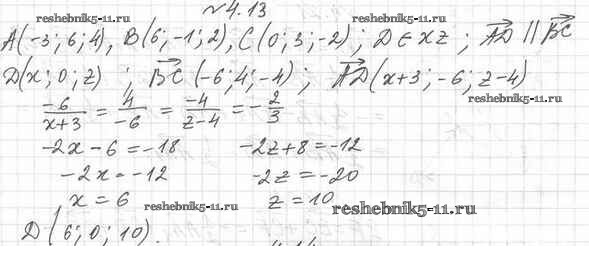 №4.13
reshebnik5-11.ru
A(-3; 6; 4), B(6; -1; 2), C(0; 3; -2); D ∈ XZ; \overrightarrow{AD} || \overrightarrow{BC}
D(x; 0; z); \overrightarrow{BC}(-6; 4; -4); \overrightarrow{AD}(x+3; -6; z-4)
reshebnik5-11.ru
\frac{-6}{x+3} = \frac{4}{-6} = \frac{-4}{z-4} = -\frac{2}{3}
-2x - 6 = -18 -2z + 8 = -12
-2x = -12 -2z = -20
x = 6 z = 10
reshebnik5-11.ru reshebnik5-11.ru
D(6; 0; 10).